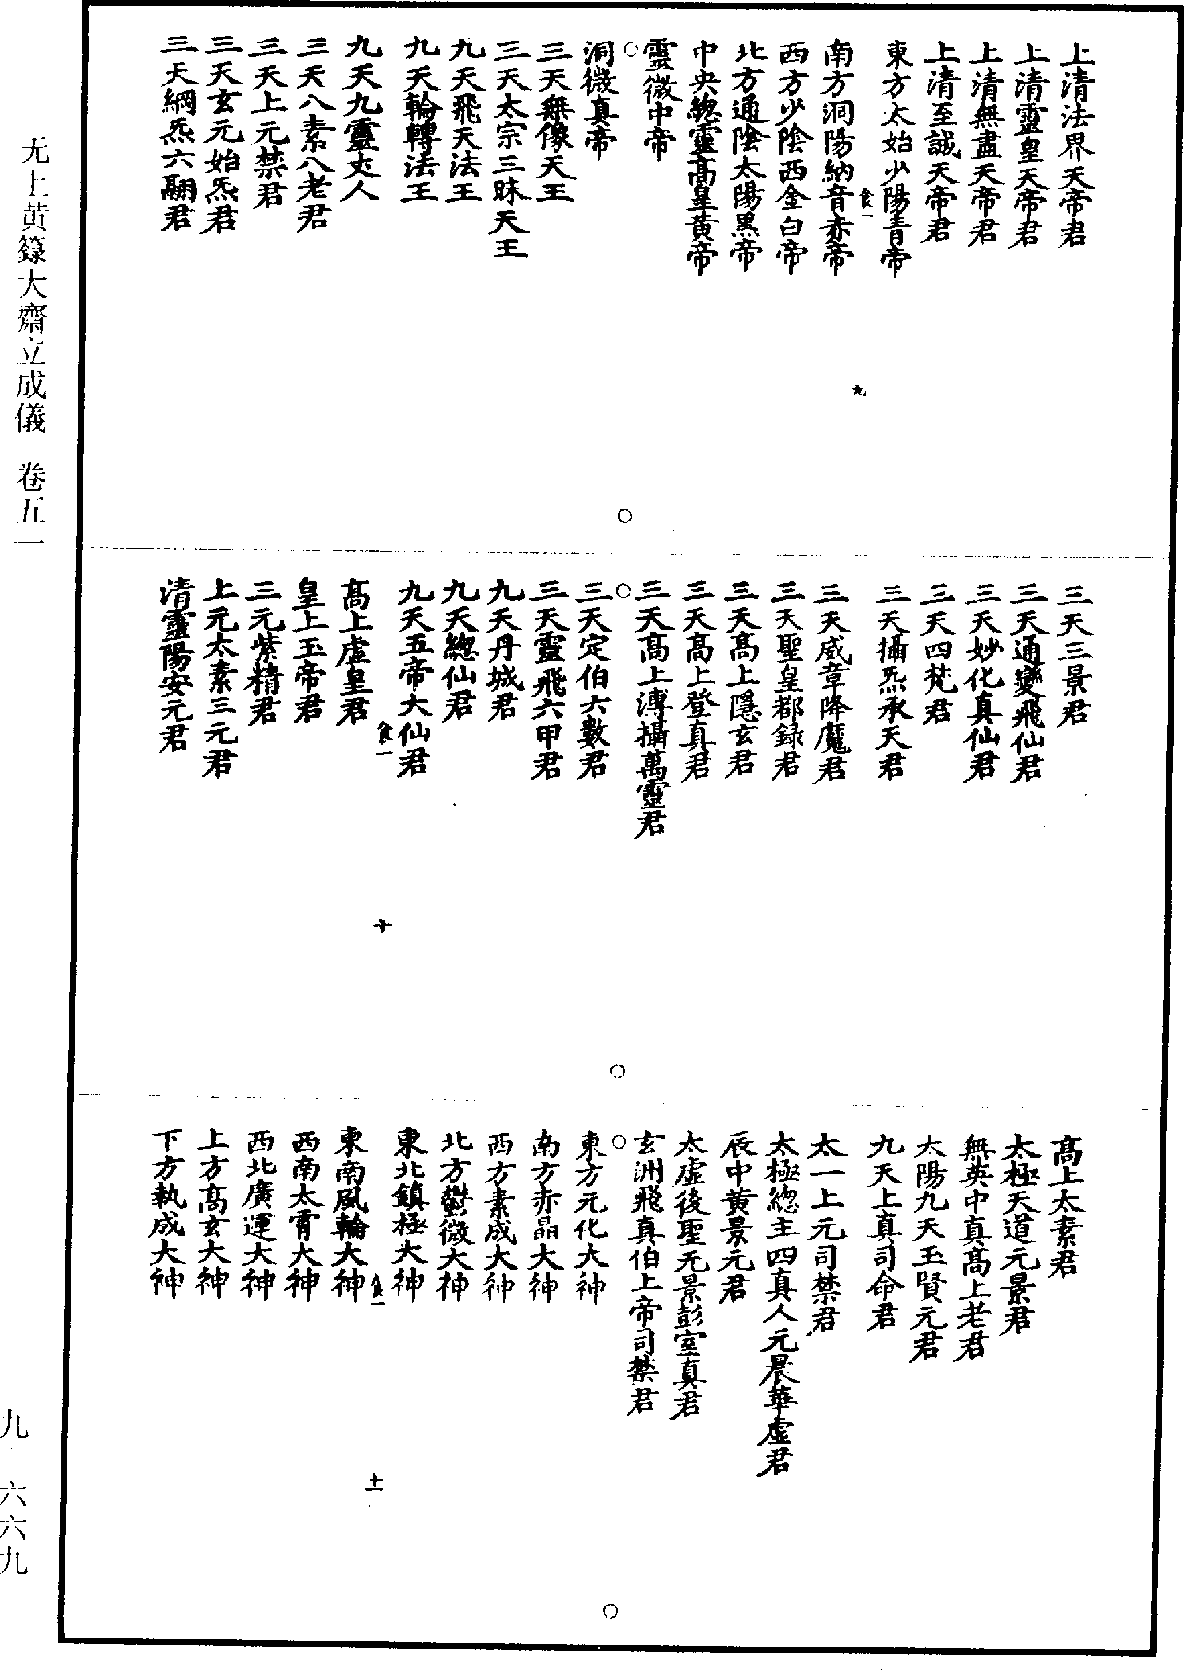 上清法界天帝君
上清靈皇天帝君
上清無盡天帝君
上清至誠天帝君
東方太始少陽青帝
食一
九
南方洞陽納音赤帝
西方少陰西金白帝
北方通陰太陽黑帝
中央總靈高皇黃帝
靈微中帝
洞微真帝
三天無像天王
三天太宗三昧天王
九天飛天法王
九天輪轉法王
九天九靈丈人
三天八素八老君
三天上元禁君
三天玄元始炁君
三天綱炁六翮君
三天三景君
三天通變飛仙君
三天妙化真仙君
三天四梵君
三天攝炁承天君
三天威章降魔君
三天聖皇都錄君
三天高上隱玄君
三天高上登真君
三天高上溥攝萬靈君
三天定伯六數君
三天靈飛六甲君
九天丹城君
九天總仙君
九天五帝大仙君
食一
十
高上虛皇君
皇上玉帝君
三元紫精君
上元太素三元君
清靈陽安元君
高上太素君
太極天道元景君
無英中真高上老君
太陽九天玉賢元君
九天上真司命君
太一上元司禁君
太極總主四真人元晨華虛君
辰中黃景元君
太虛後聖无景彭室真君
玄洲飛真伯上帝司禁君
東方元化大神
南方赤晶大神
西方素成大神
北方鬱微大神
東北鎮極大神
食一
十一
東南風輪大神
西南太霄大神
西北廣運大神
上方高玄大神
下方執成大神
无上黃籙大齋立成儀 卷五一
九 六六九